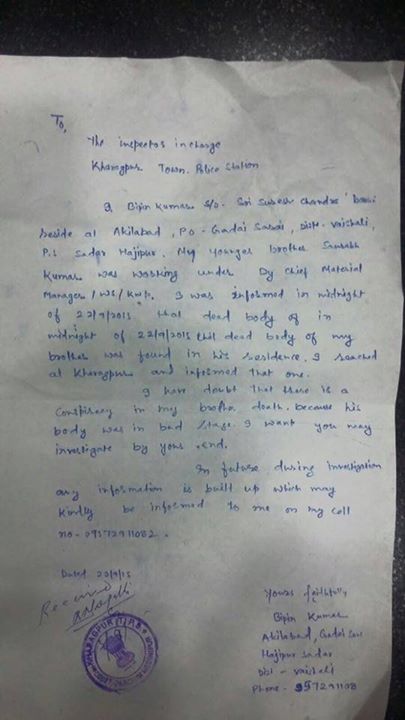 To,
The inspector incharge
Kharagpur Town Police Station
I Bipin Kumar S/o - Sri Suresh Chandra
Reside at Akilabad, P.O - Gadai Sarai, Distt - Vaishali,
P.s Sadar Hajipur. My younger brother Saurabh
Kumar was working under Dy Chief Material
Manager / WS / KWP. I was informed in midnight
of 22/9/2015 that dead body of in
midnight of 22/9/2015 that dead body of my
brother was found in his residence. I reached
at Kharagpur and informed that one.
I have doubt that there is a
conspiracy in my brother death. because his
body was in bad stage. I want you may
investigate by your end.
In future during investigation
any information is built up which may
kindly be informed to me on my cell
no - 09572911082.
Dated 23/9/15
Received
Yours faithfully
Bipin Kumar
Akilabad, Gadai Sarai
Hajipur Sadar
Dist - Vaishali
Phone - 957291108
KHARAGPUR (T) P.S